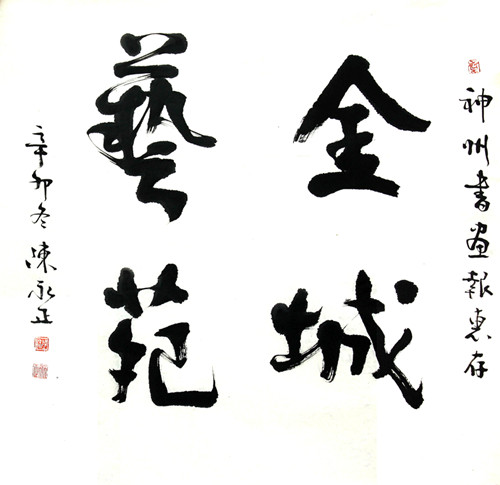 神州書畫報惠存
金城
藝苑
辛卯冬陳永正